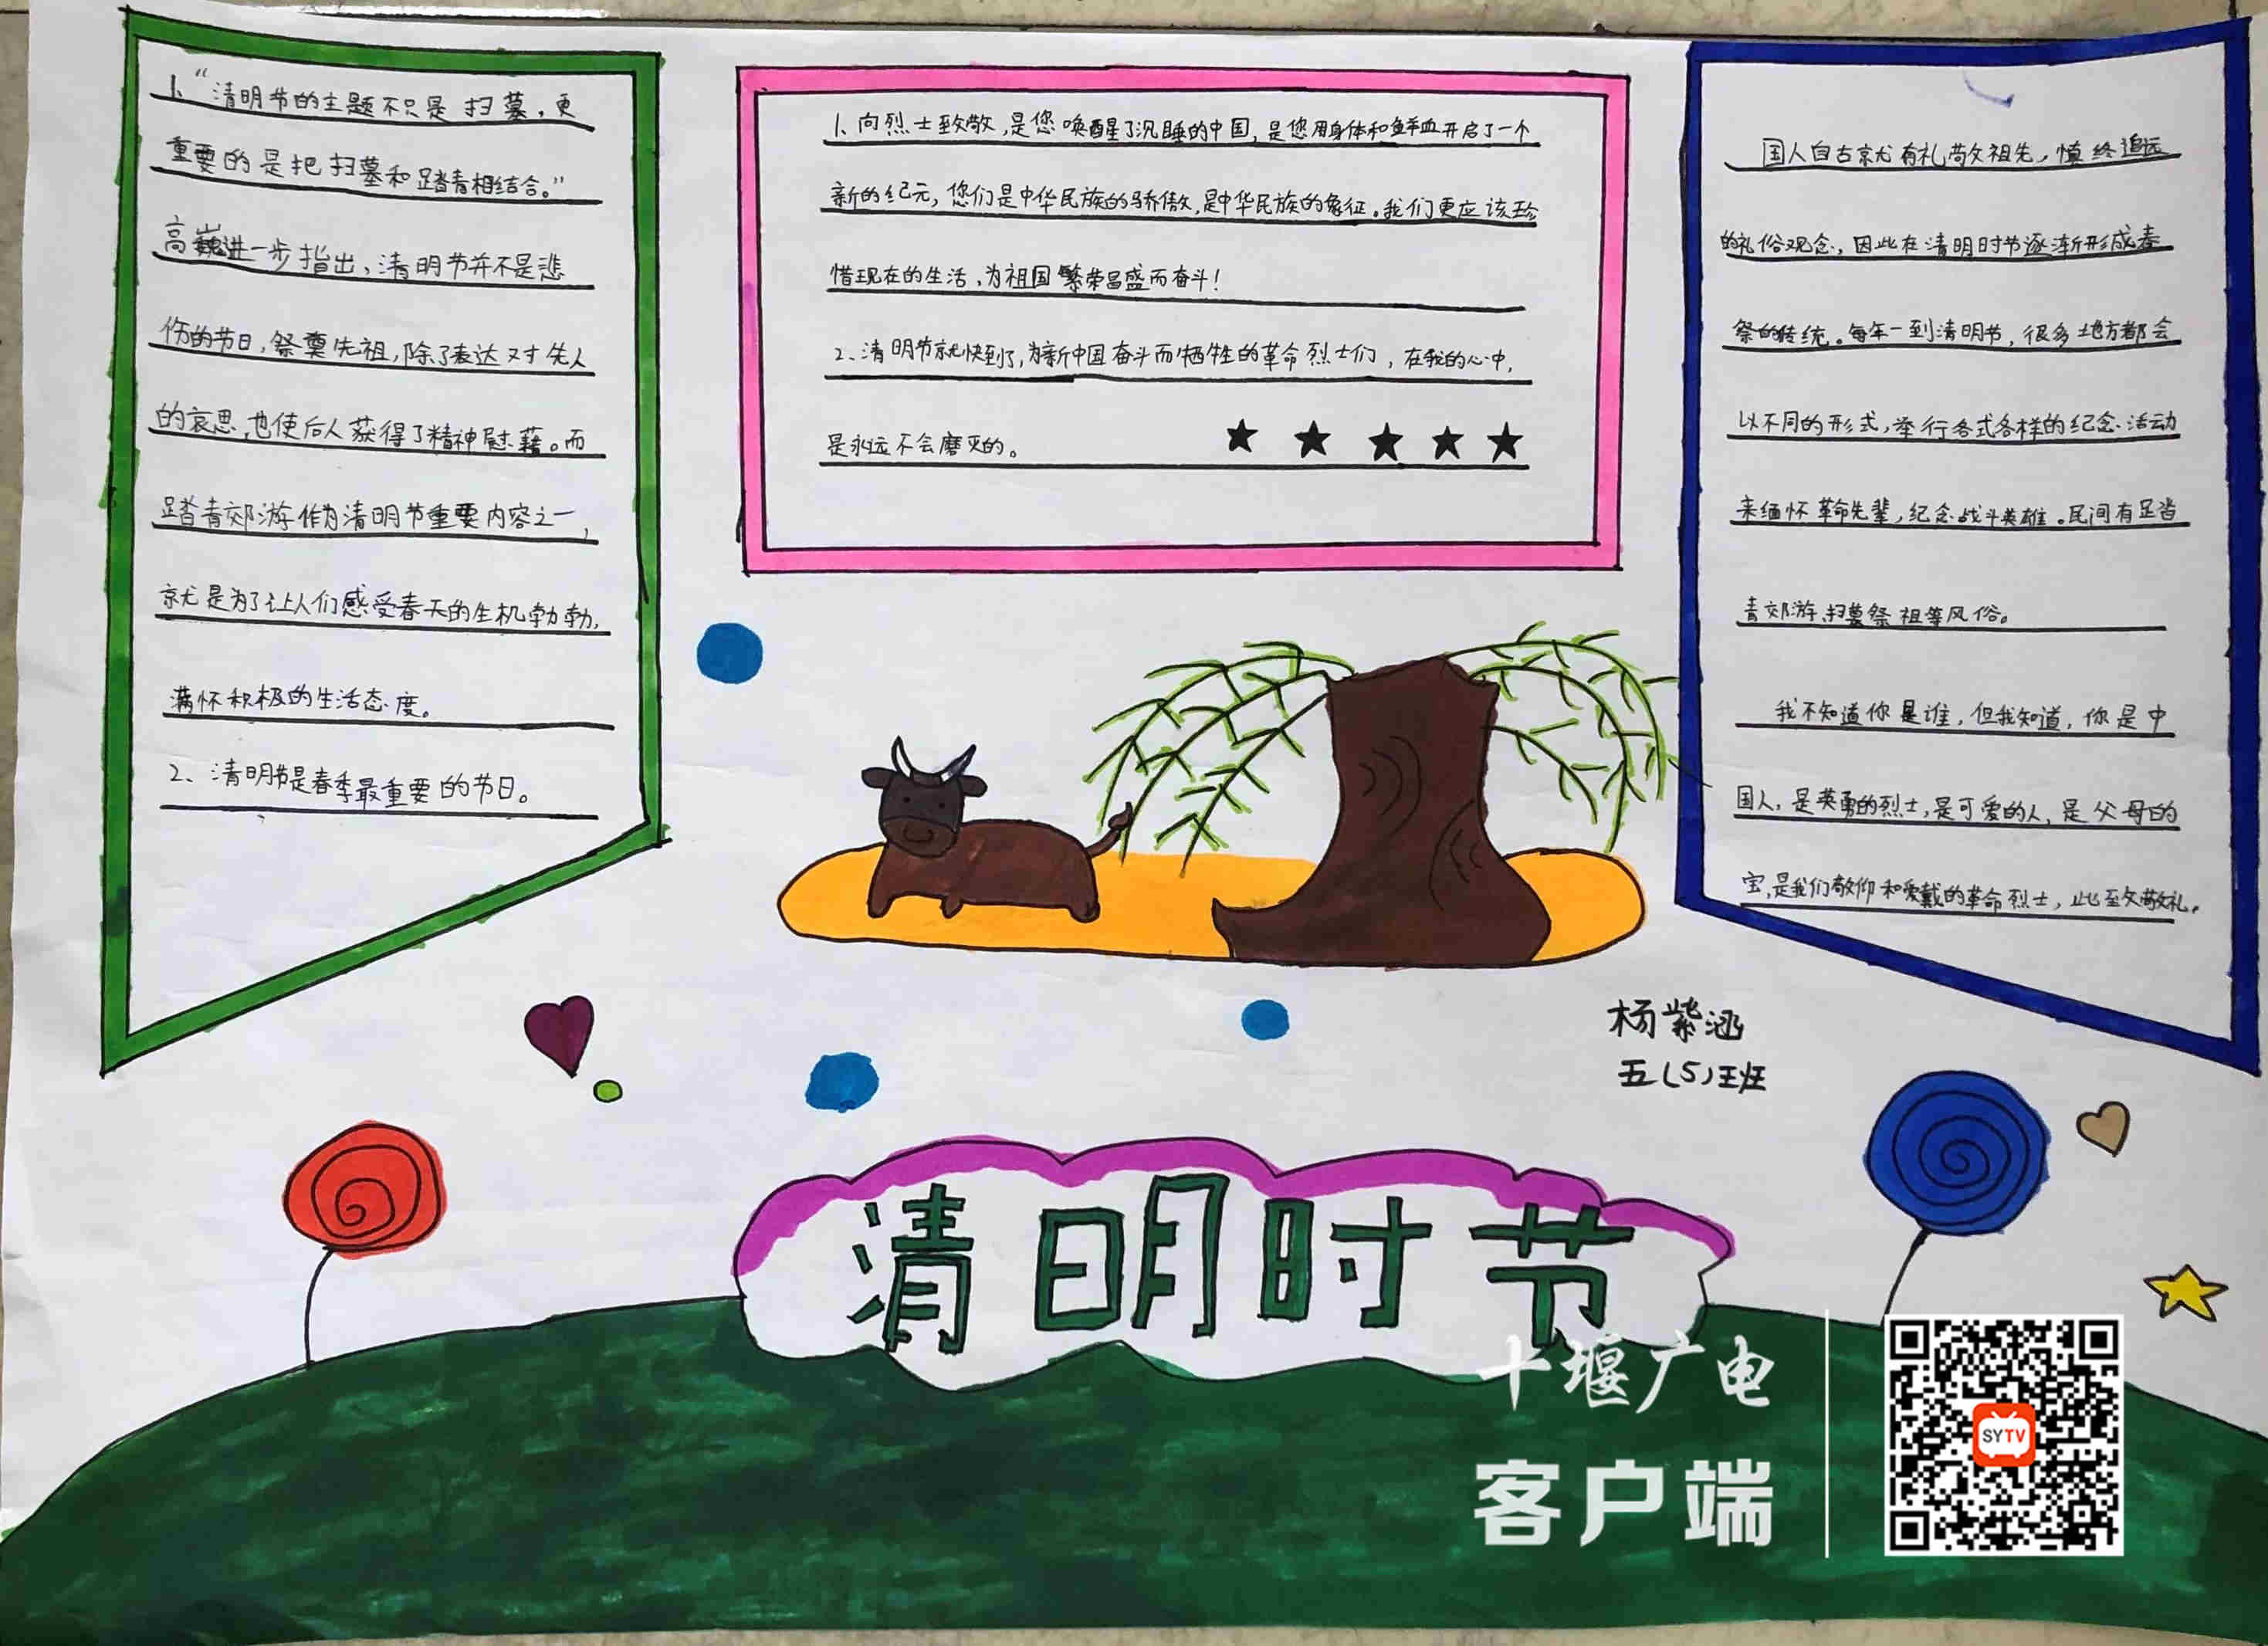 1、“清明节的主题不只是扫墓,更
重要的是把扫墓和踏青相结合。”
高巍进一步指出,清明节并不是悲
伤的节日,祭奠先祖,除了表达对先人
的哀思,也使后人获得了精神慰藉。而
踏青郊游作为清明节重要内容之一,
就是为了让人们感受春天的生机勃勃,
满怀积极的生活态度。
2、清明节是春季最重要的节日。
1、向烈士致敬,是您唤醒了沉睡的中国,是您用身体和鲜血开启了一个
新的纪元,您们是中华民族的骄傲,是中华民族的象征。我们更应该珍
惜现在的生活,为祖国繁荣昌盛而奋斗!
2、清明节就快到了,为新中国奋斗而牺牲的革命烈士们,在我的心中,
是永远不会磨灭的。
国人自古就有礼敬祖先,慎终追远
的礼俗观念,因此在清明时节逐渐形成春
祭的传统。每年一到清明节,很多地方都会
以不同的形式,举行各式各样的纪念活动
来缅怀革命先辈,纪念战斗英雄。民间有踏
青郊游、扫墓祭祖等风俗。
我不知道你是谁,但我知道,你是中
国人,是英勇的烈士,是可爱的人,是父母的
宝,是我们敬仰和爱戴的革命烈士,此致敬礼。
杨紫涵
五(5)班
清明时节
十堰广电
客户端
SYTV